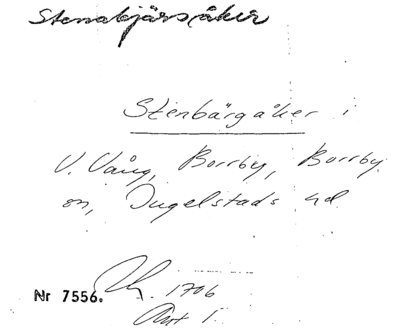 Stensbjärsåker
Stenbärgåker i
V. Vång, Borrby, Borrby
sn, Ingelstads hd
1706
Nr 7556.
Akt 1.